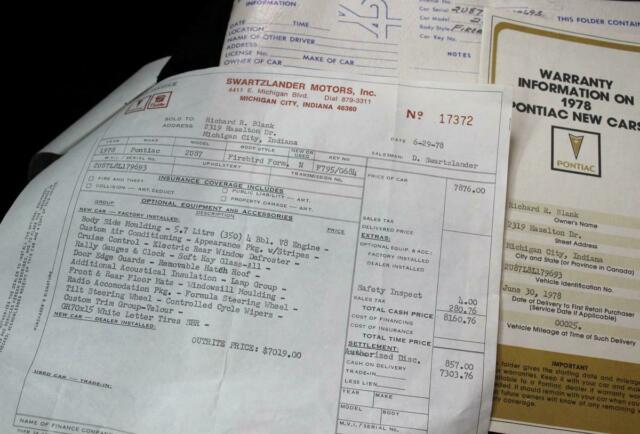 DATE
TIME
LOCATION
NAME OF OTHER DRIVER
ADDRESS
LICENSE No. MAKE OF CAR
OWNER OF CAR
Car Serial
Car Model
Body Style
Car Key No.
NOTES
THIS FOLDER CONTAIN
WARRANTY
INFORMATION ON
1978
PONTIAC NEW CARS
PONTIAC
Richard R. Blank
Owner's Name
2319 Hazelton Dr.
Street Address
Michigan City, Indiana
City and State (or Province in Canada)
2U87L8L179693
Vehicle Identification No.
June 30, 1978
Date of Delivery to First Retail Purchaser
(Service Date if Applicable)
00025.
Vehicle Mileage at Time of Such Delivery
IMPORTANT
SWARTZLANDER MOTORS, Inc.
4411 E. Michigan Blvd. Dial 879-3311
MICHIGAN CITY, INDIANA 46360
No 17372
SOLD TO: Richard R. Blank
ADDRESS 2319 Hazelton Dr.
Michigan City, Indiana
DATE 6-29-78
SALESMAN: D. Swartzlander
YEAR MAKE MODEL BODY STYLE NEW OR USED KEY NO
1978 Pontiac 2U87 Firebird Form. N F795/0684
M.V.I. / SERIAL NO. UPHOLSTERY TRANSMISSION NO.
2U87L8L179693
INSURANCE COVERAGE INCLUDES
FIRE AND THEFT PUBLIC LIABILITY - AMT.
COLLISION - AMT. DEDUCT PROPERTY DAMAGE - AMT.
OPTIONAL EQUIPMENT AND ACCESSORIES
GROUP DESCRIPTION PRICE
NEW CAR - FACTORY INSTALLED:
Body Side Moulding - 5.7 Litre (350) 4 Bbl. V8 Engine -
Custom Air Conditioning - Appearance Pkg. w/Stripes -
Cruise Control - Electric Rear Window Defroster -
Rally Gauges & Clock - Soft Ray Glass-All -
Door Edge Guards - Removable Hatch Roof -
Additional Acoustical Insulation - Lamp Group -
Front & Rear Floor Mats - Windowsill Moulding -
Radio Accomodation Pkg. - Formula Steering Wheel -
Tilt Steering Wheel - Controlled Cycle Wipers -
Custom Trim Group-Velour -
GR70x15 White Letter Tires SBR -
NEW CAR - DEALER INSTALLED:
OUTRITE PRICE: $7019.00
USED CAR TRADE-IN:
NAME OF FINANCE COMPANY
PRICE OF CAR 7876.00
SALES TAX
DELIVERED PRICE
EXTRAS:
OPTIONAL EQUIP. & ACC.
FACTORY INSTALLED
DEALER INSTALLED
Safety Inspect 4.00
SALES TAX 280.76
TOTAL CASH PRICE 8160.76
COST OF FINANCING
COST OF INSURANCE
TOTAL TIME PRICE
SETTLEMENT:
Authorized Disc. 857.00
CASH ON DELIVERY 7303.76
TRADE-IN
LESS LIEN
YEAR MAKE
MODEL BODY
M.V.I. / SERIAL NO.
PURCHASER'S SIGNATURE